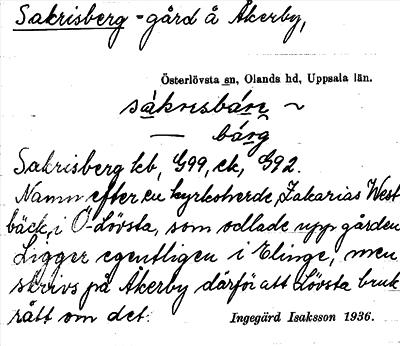 Sakrisberg - gård å Åkerby,
Österlövsta sn, Olands hd, Uppsala län.
sákrisbárɛ ~
— bárg
Sakrisberg kb, G99, ek, G92.
Namn efter en kyrkoherde, Zakarias West
bäck, i Ö-Lövsta, som odlade upp gården
Ligger egentligen i Elinge, men
skrivs på Åkerby därför att Lövsta bruk
rått om det.
Ingegärd Isaksson 1936.